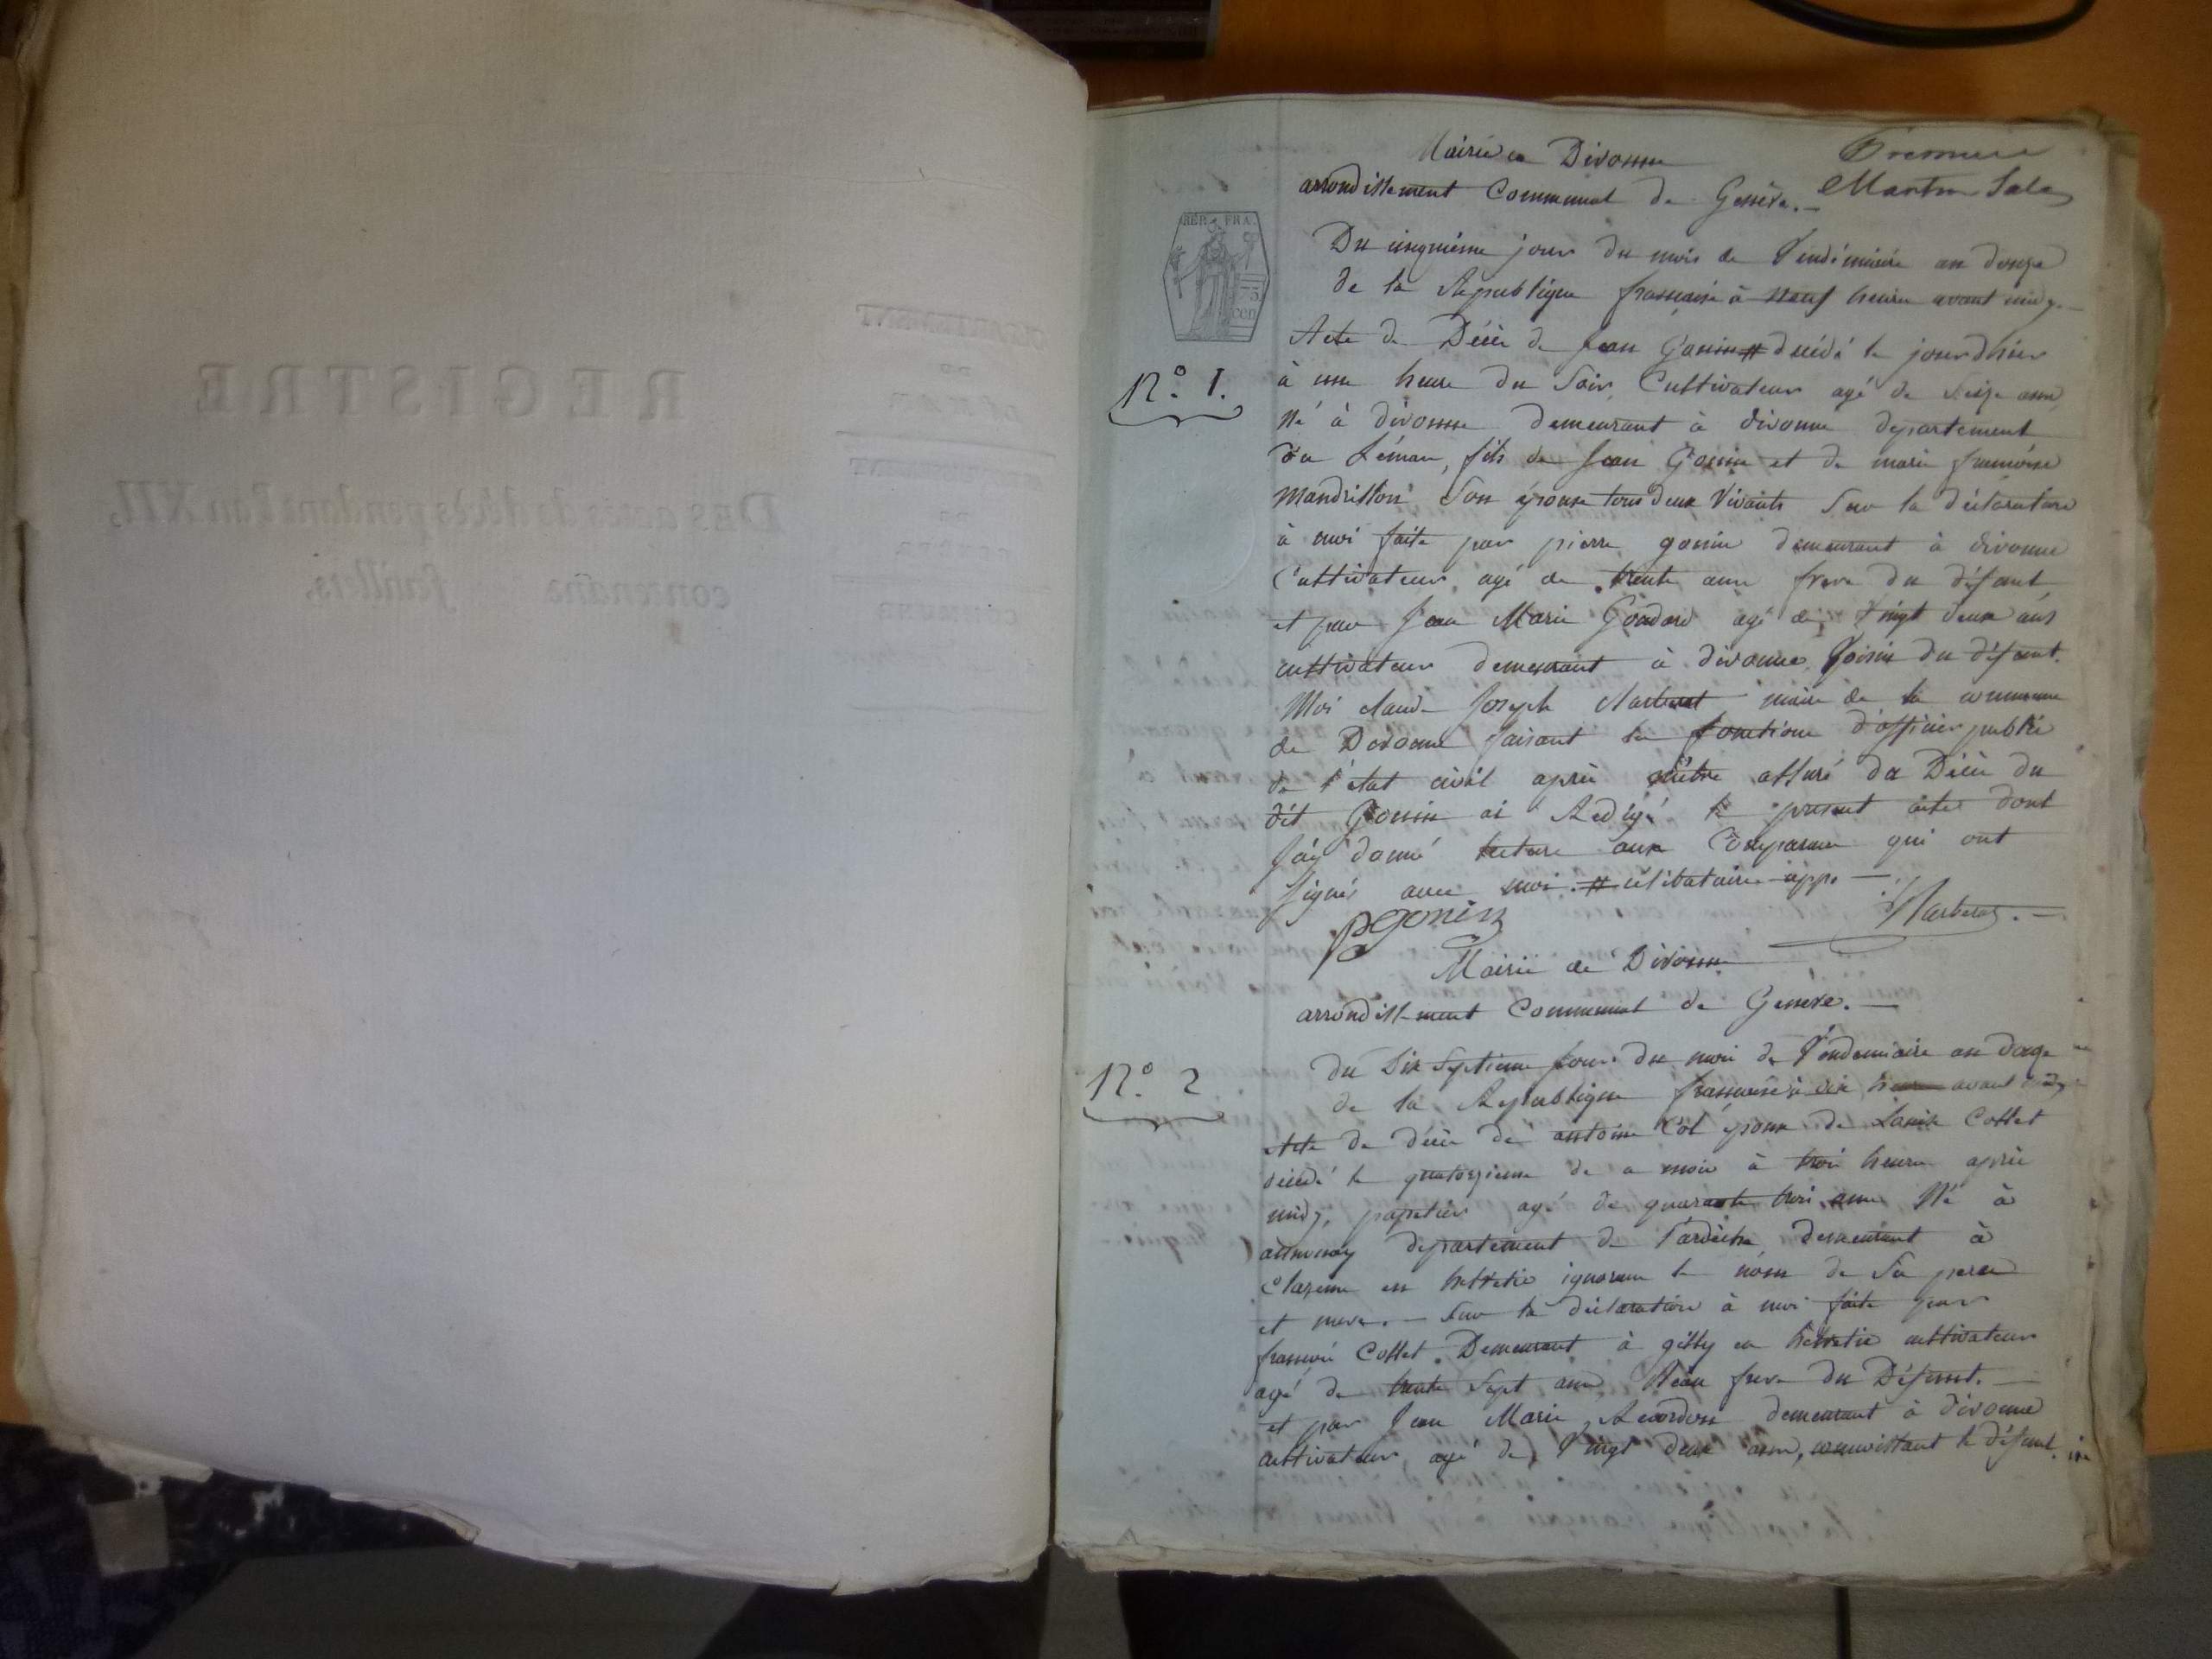 REGISTRE
DES actes de décès pendant l'an XII,
contenant feuillets,
DÉPARTEMENT
DU
LÉMAN
COMMUNE
Mairie de Divonne
arrondissement Communal de Genève. —
Premiere
Martin Sales
REP. FRA.
75
cen
Du cinquième jour du mois de Vendémiaire an douze
de la République francaise à neuf heures avant midy. —
N.º 1.
Acte de Décès de Jean Gonin # décédé le jour d'hier
à une heure du Soir, Cultivateur agé de Seize ans,
Né à divonne demeurant à divonne département
du Léman, fils de Jean Gonin et de marie francoise
Mandrillon Son épouse tous deux Vivants Sur la déclaration
à moi faite par pierre gonin demeurant à divonne
Cultivateur agé de trente ans frere du défunt
et par Jean Marie Gondard agé de Vingt deux ans
cultivateur demeurant à divonne, Voisin du défunt.
Moi claude Joseph Marberat maire de la commune
de Divonne faisant les fonctions d'officier public
de l'état civil après m'être assuré du Décès du
dit Gonin ai Rédigé le present acte dont
J'ay donné lecture aux Comparans qui ont
signés avec moi. # célibataire app. —
P gonin
Marberat. —
Mairie de Divonne
arrondissement Communal de Geneve. —
N.º 2
Du Dix Septieme jour du mois de Vendemiaire an douze
de la République francaise à dix heures avant midy
Acte de décès de antoine Col époux de Louise Collet
décédé le quatorzieme de ce mois à trois heures après
midy, papetier agé de quarante trois ans Né à
annonay département de l'ardèche demeurant à
en helvetie ignorant le nom de Ses pere
et mere. — Sur la déclaration à moi faite par
francois Collet Demeurant à gilly en helvetie cultivateur
agé de trente Sept ans Beau frere du Défunt. —
et par Jean Marie Recordon demeurant à divonne
cultivateur agé de Vingt deux ans, connoissant le défunt.